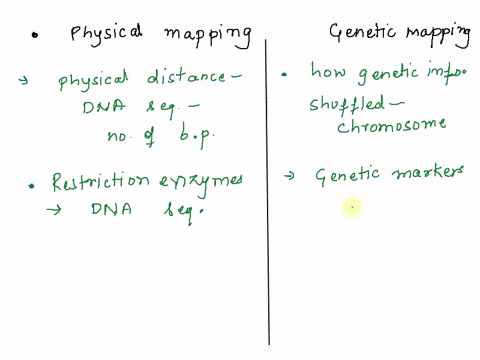 • Physical mapping
→ physical distance –
DNA seq. –
no. of b.p.
• Restriction enzymes
→ DNA seq.
Genetic mapping
• how genetic info.
shuffled –
chromosome
→ Genetic markers